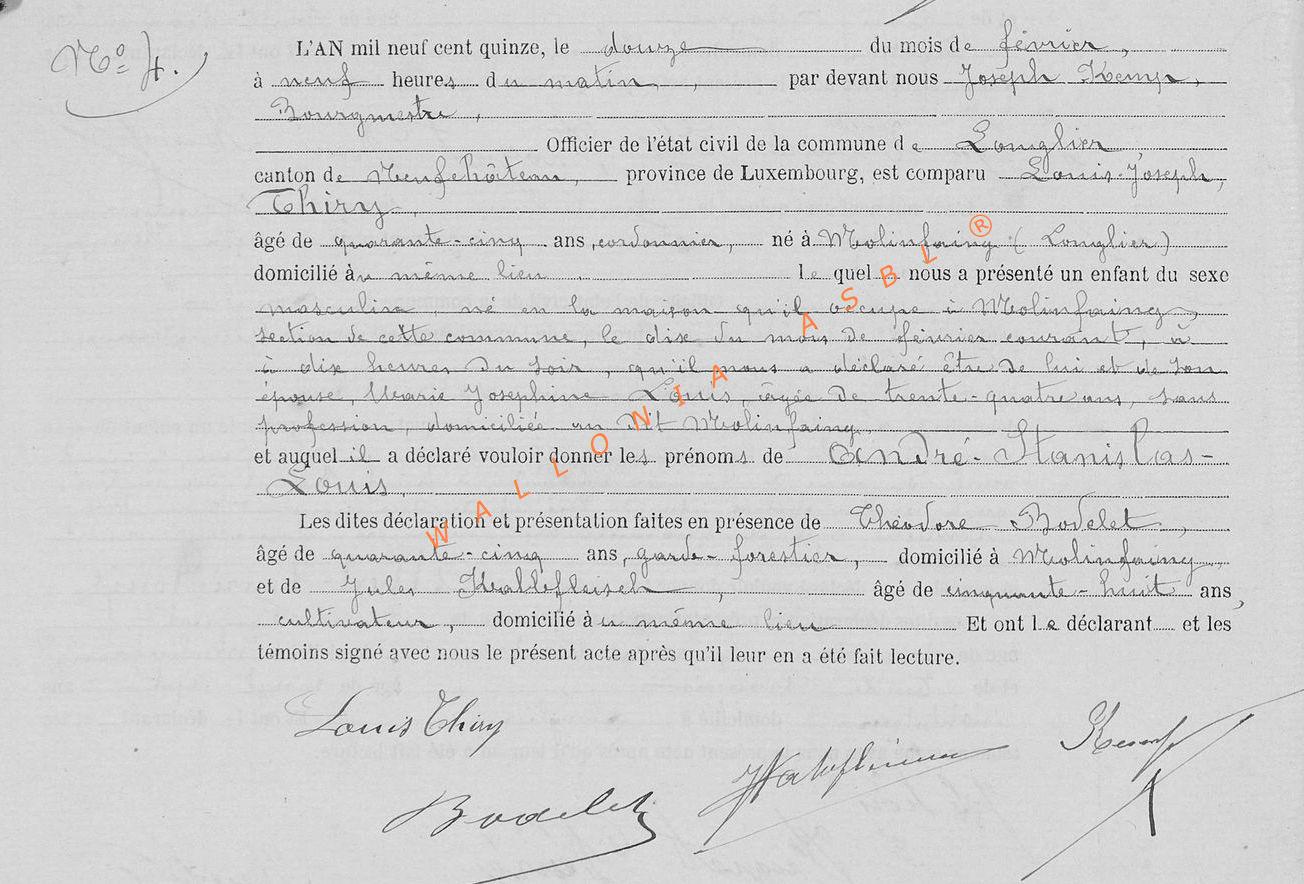 N° 4.
L'AN mil neuf cent quinze, le douze du mois de février,
à neuf heures du matin, par devant nous Joseph Kemp,
Bourgmestre,
Officier de l'état civil de la commune de Longlier,
canton de Neufchâteau, province de Luxembourg, est comparu Louis-Joseph,
Thiry,
âgé de quarante-cinq ans, cordonnier, né à Molinfaing (Longlier)
domicilié au même lieu. lequel nous a présenté un enfant du sexe
masculin, né en la maison qu'il occupe à Molinfaing,
section de cette commune, le dix du mois de février courant, à
à dix heures du soir, qu'il nous a déclaré être de lui et de son
épouse, Marie Josephine Louis, âgée de trente-quatre ans, sans
profession, domiciliée au dit Molinfaing,
et auquel il a déclaré vouloir donner les prénoms de André-Stanislas-
Louis,
Les dites déclaration et présentation faites en présence de Théodore Bodelet,
âgé de quarante-cinq ans, garde-forestier, domicilié à Molinfaing
et de Jules Kalbfleisch, âgé de cinquante-huit ans,
cultivateur, domicilié au même lieu Et ont le déclarant et les
témoins signé avec nous le présent acte après qu'il leur en a été fait lecture.
Louis Thiry
Kemp
Bodelet
WALLONIA ASBL ®